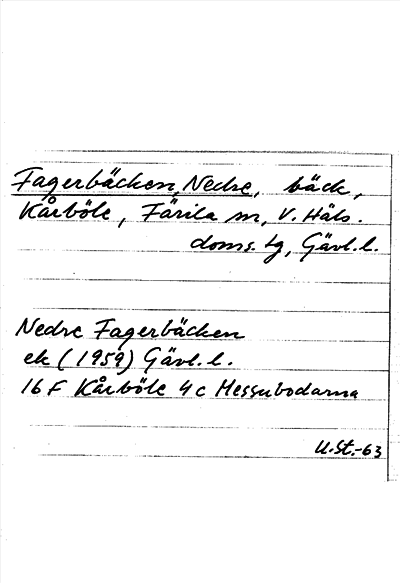 Fagerbäcken, Nedre, bäck,
Kårböle, Färila sn, V. Häls.
doms. tg, Gävl. l.
Nedre Fagerbäcken
ek (1959) Gävl. l.
16 F Kårböle 4 c Messubodarna
U.St.-63